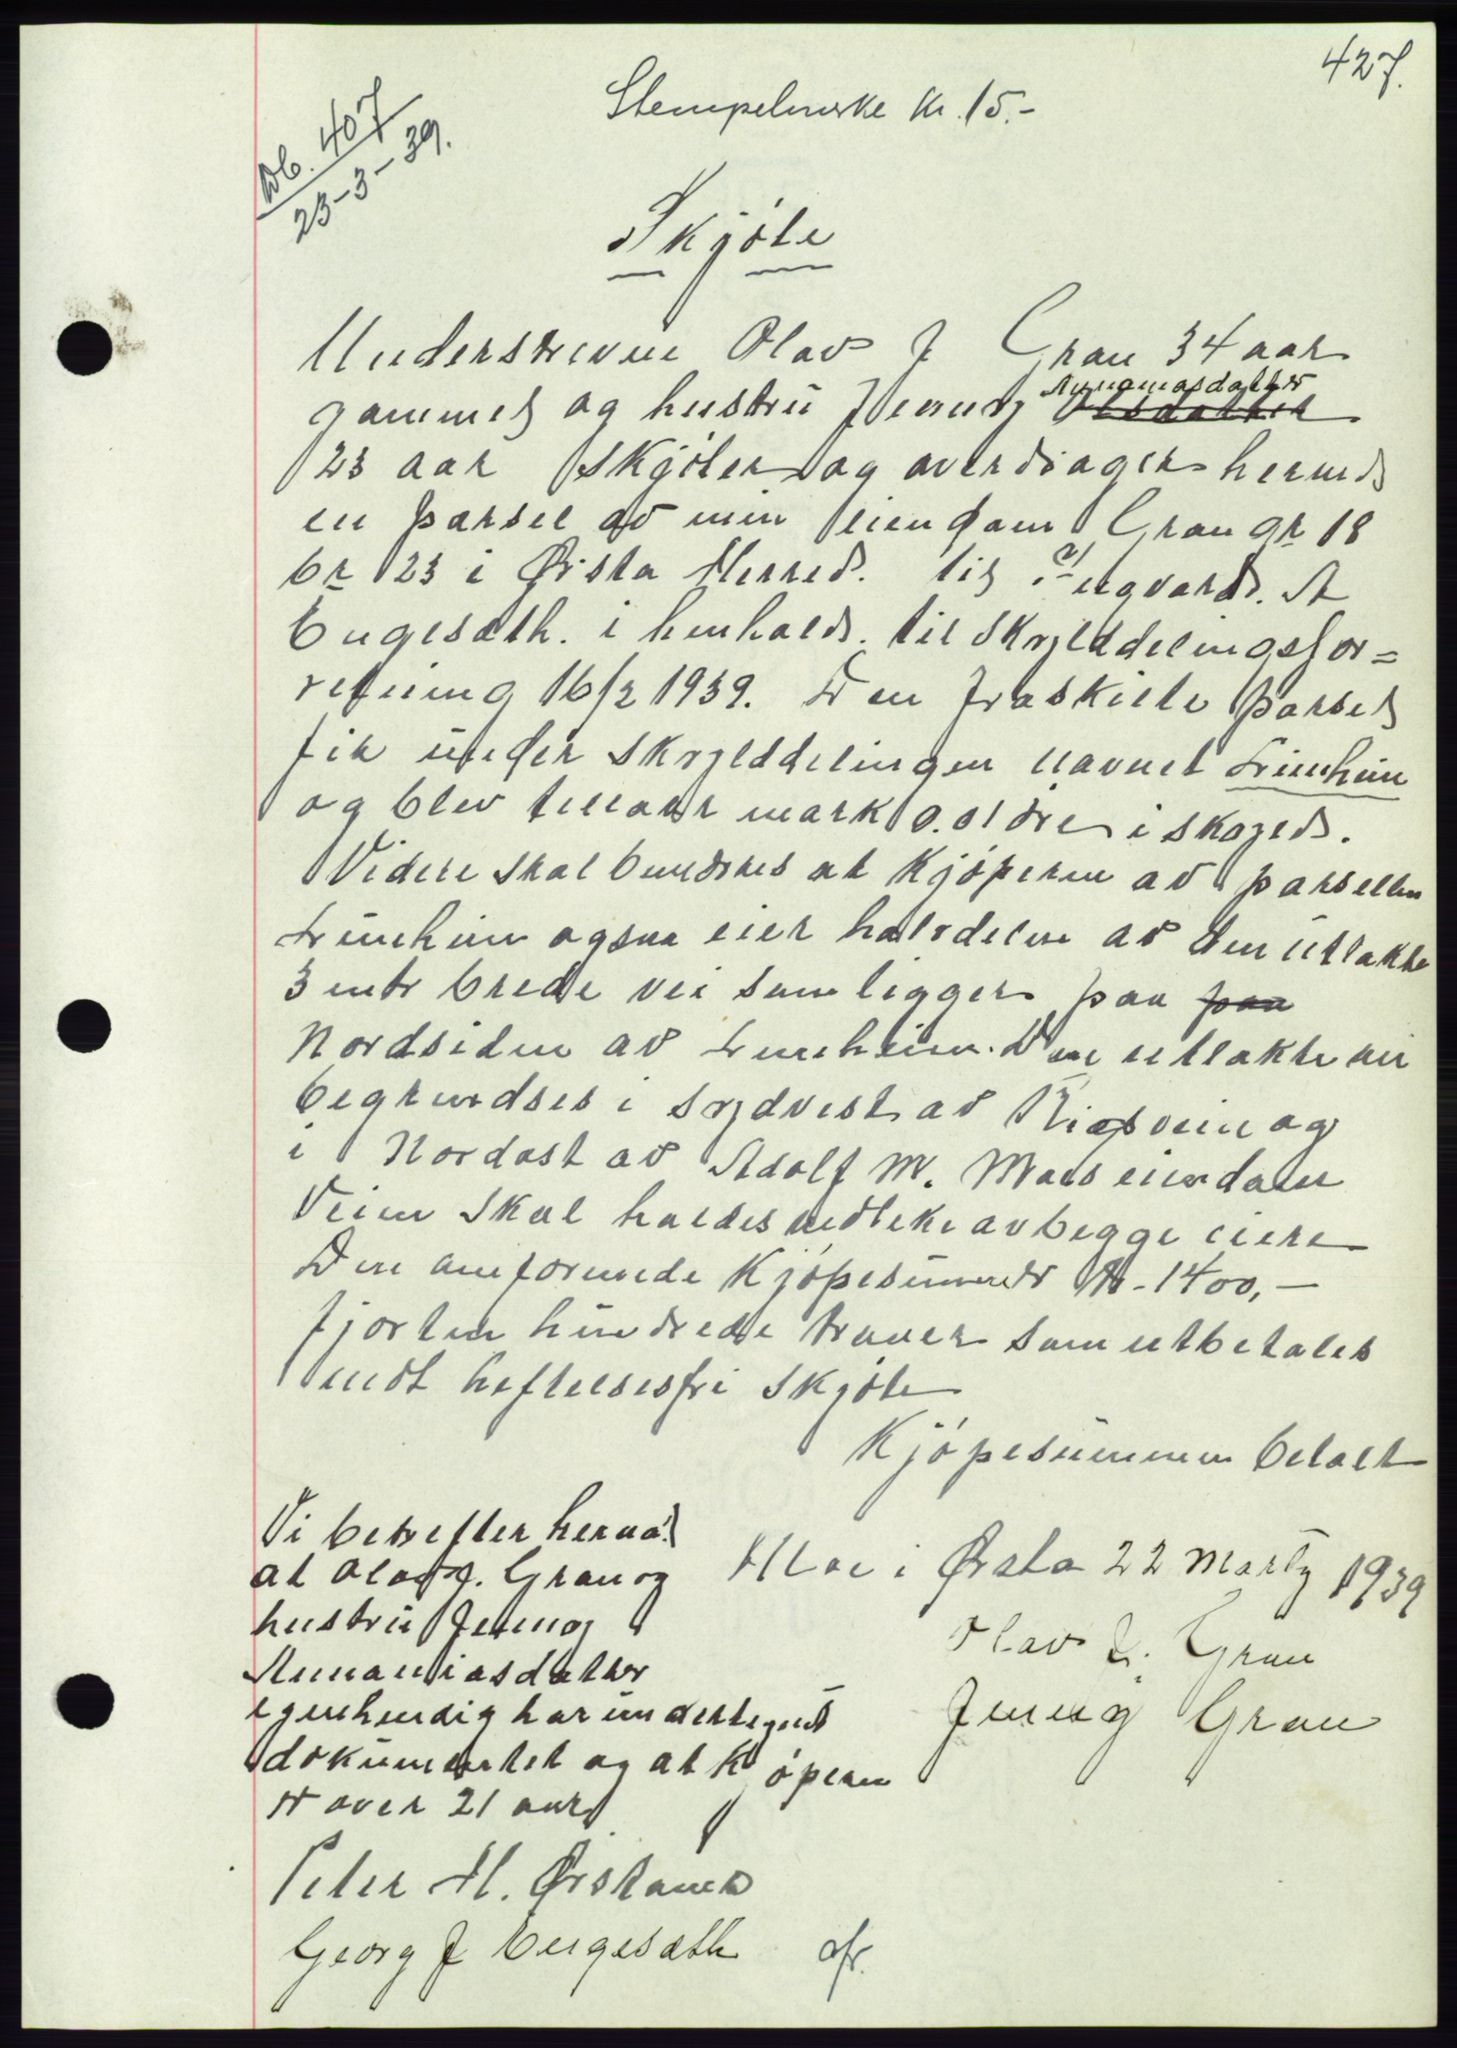 427.
Stempelmerke kr. 15.-
Db. 407
23-3-39.
Skjøte
Underskrevne Olav J Gran 34 aar
gammel og hustru Jenny Annaniasdatter ~~Olsdatter~~
23 aar skjøter og overdrager herved
en parsel av min eiendom Gran gr 18
br 23 i Ørsta Herred. til Ingvard. A
Engesæth. i henhold. til skylddelingsfor=
retning 16/2 1939. Den fraskilte parsel
fik under skylddelingen navnet Trimheim
og blev tillagt mark 0.01 øre i skyld.
Videre skal bemerkes at kjøperen av parsellen
Trimheim ogsaa eier halvdelen av den utlakte
3 mtr brede vei som ligger paa ~~paa~~
Nordsiden av Trimheim. Den utlakte vei
begrendses i sydvest av Riksveien og
i Nordøst av Adolf M. Moes eiendom
Veien skal holdes vedlike av begge eiere
Den omforenede kjøpesum er kr. 1400,-
fjorten hundrede kroner som utbetales
mot heftelsesfri skjøte
Kjøpesummen betalt
Moe i Ørsta 22 Marts 1939
Olav J. Gran
Jenny Gran
Vi bekrefter herved
at Olav J. Gran og
hustru Jenny
Annaniasdatter
egenhendig har undertegnet
dokumentet og at kjøperen
er over 21 aar
Peter M. Ørstavik
Georg J Engesæth